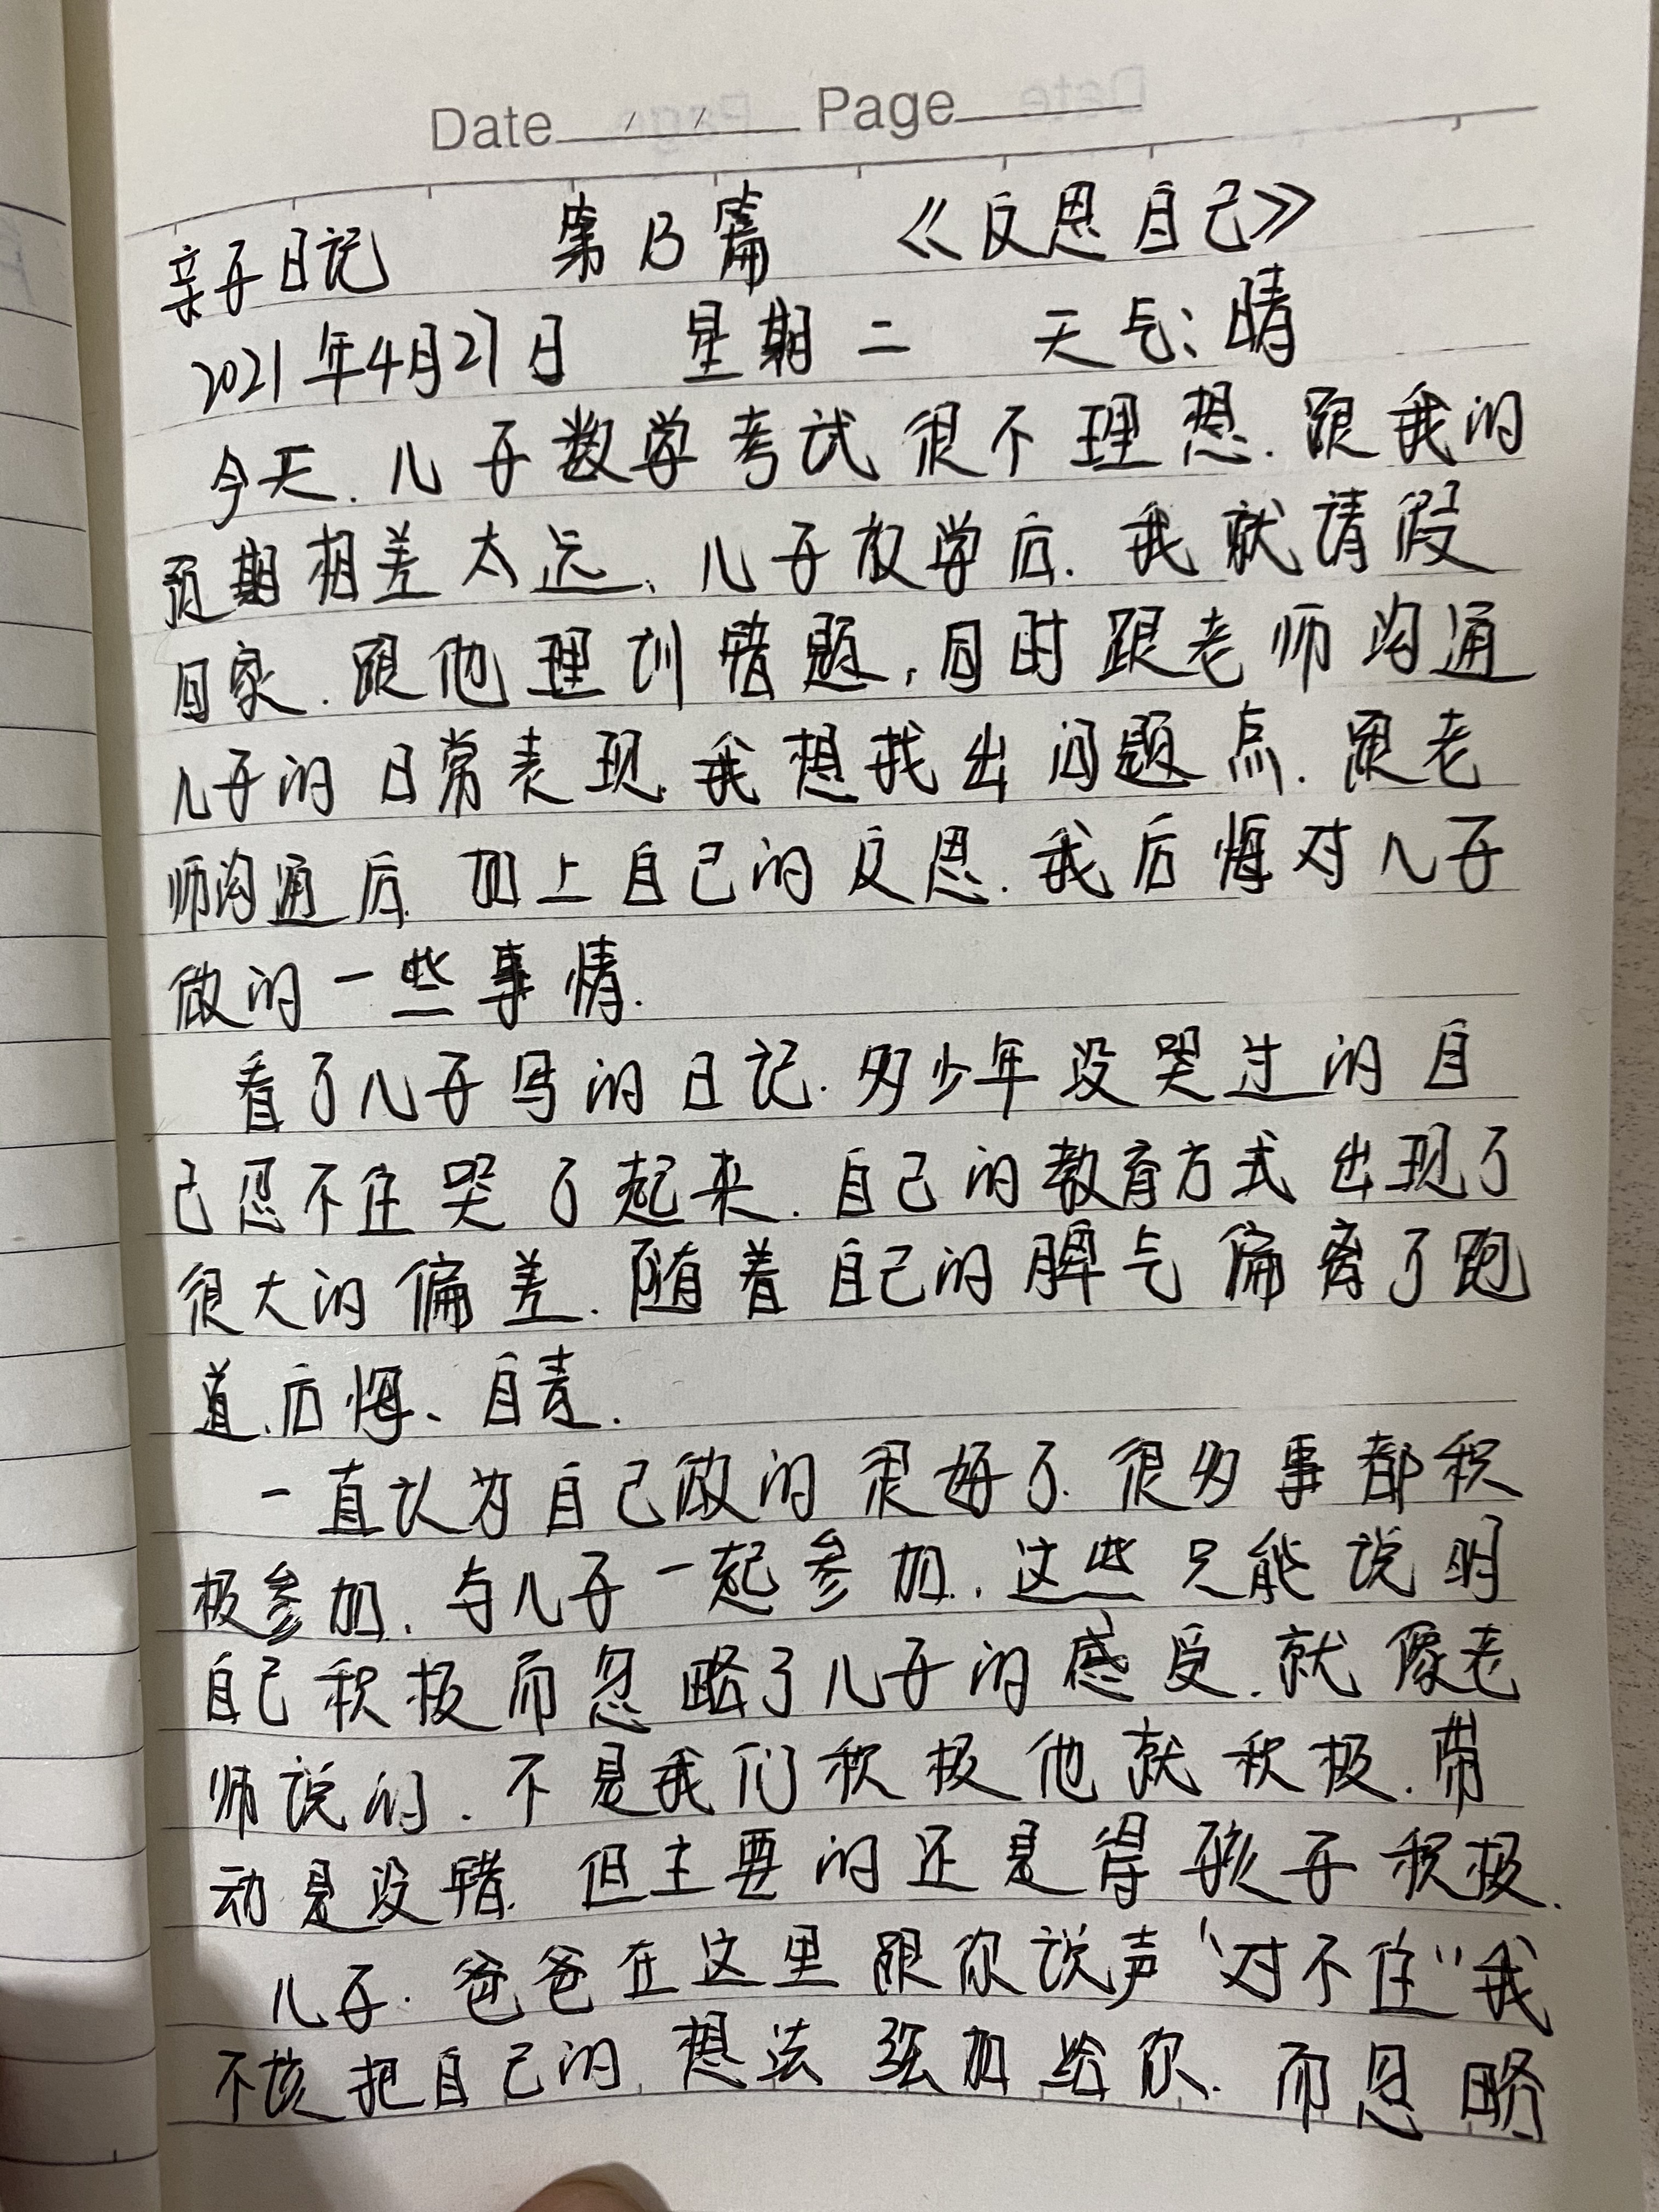 Date / / Page
亲子日记 第13篇 《反思自己》
2021年4月27日 星期二 天气:晴
今天.儿子数学考试很不理想.跟我的
预期相差太远、儿子放学后.我就请假
回家.跟他理训错题,同时跟老师沟通
儿子的日常表现.我想找出问题点.跟老
师沟通后.加上自己的反思.我后悔对儿子
做的一些事情.
看了儿子写的日记.多少年没哭过的自
己忍不住哭了起来.自己的教育方式出现了
很大的偏差.随着自己的脾气偏离了跑
道.后悔、自责.
一直认为自己做的很好了.很多事都积
极参加.与儿子一起参加.这些只能说明
自己积极而忽略了儿子的感受.就像老
师说的.不是我们积极他就积极.带
动是没错.但主要的还是得孩子积极.
儿子.爸爸在这里跟你说声“对不住”我
不该把自己的想法强加给你.而忽略